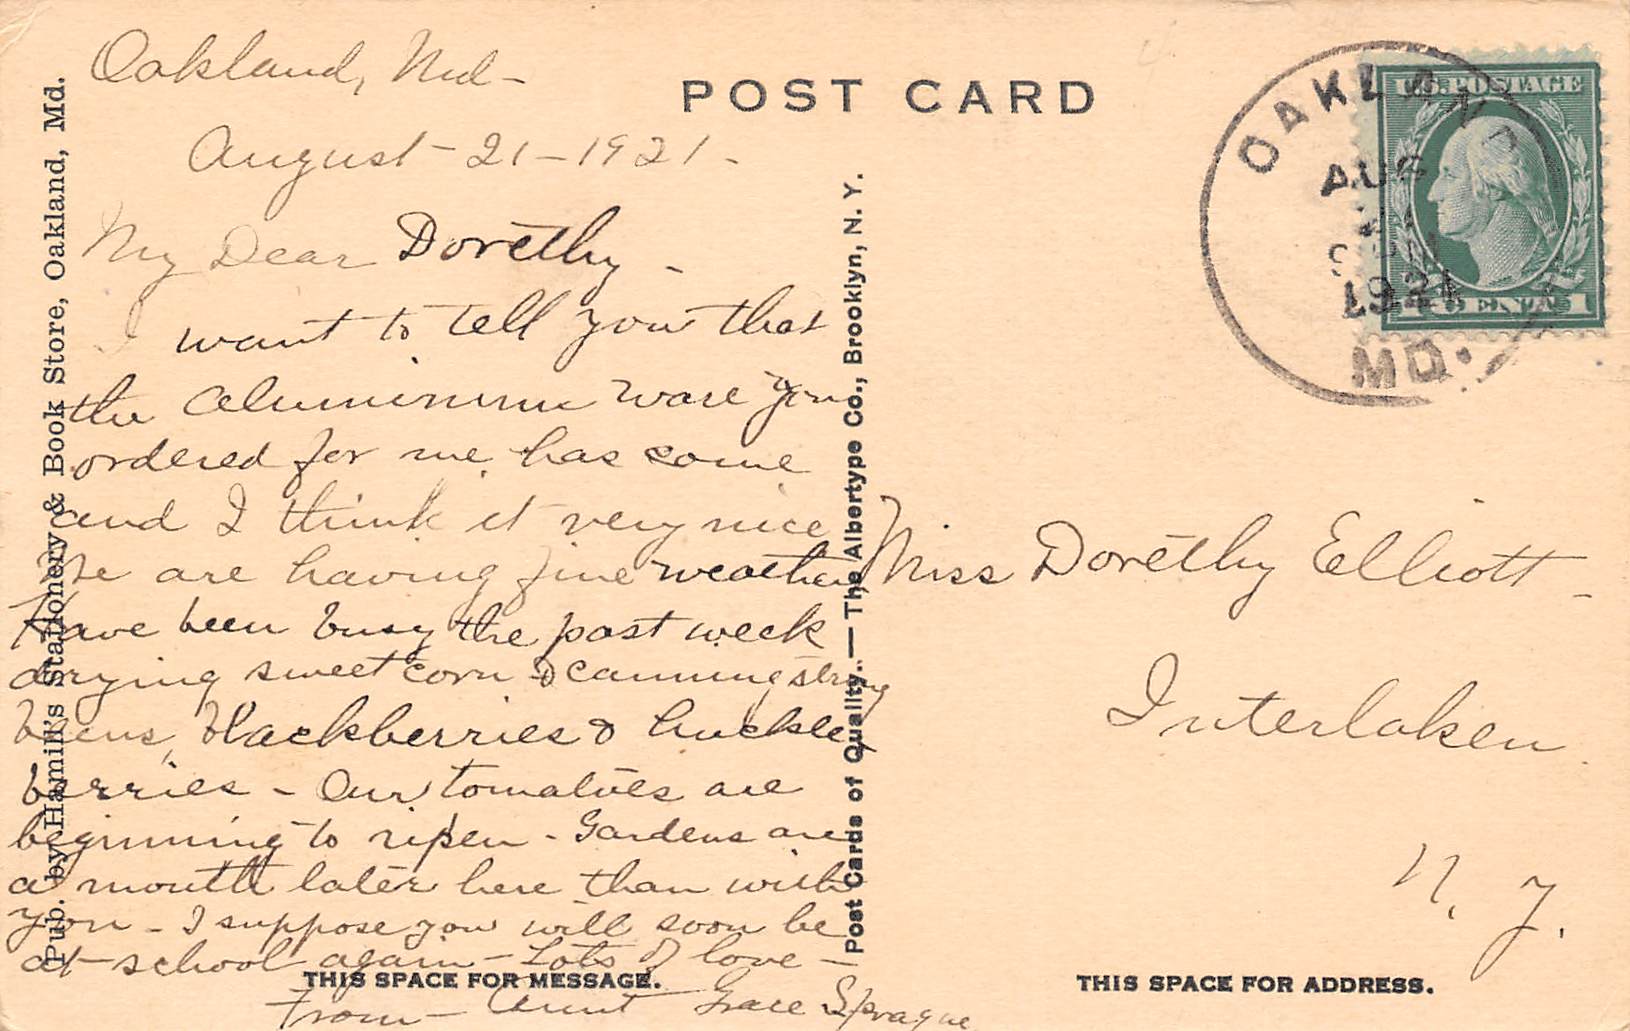 Oakland, Md -
August - 21 - 1921 -
My Dear Dorethy -
I want to tell you that
the Aluminum ware you
ordered for me has come
and I think it very nice
We are having fine weather
Have been busy the past week
drying sweet corn & canning string
beens, blackberries & huckle
berries - Our tomatoes are
beginning to ripen - Gardens are
a month later here than with
you - I suppose you will soon be
at school again - Lots of love -
From - Aunt Grace Sprague
Pub. by Hamill's Stationery & Book Store, Oakland, Md.
POST CARD
Post Cards of Quality. — The Albertype Co., Brooklyn, N. Y.
THIS SPACE FOR MESSAGE.
OAKLAND
AUG
21
1921
MD.
U.S. POSTAGE
1 CENT 1
Miss Dorethy Elliott -
Interlaken
N. Y.
THIS SPACE FOR ADDRESS.